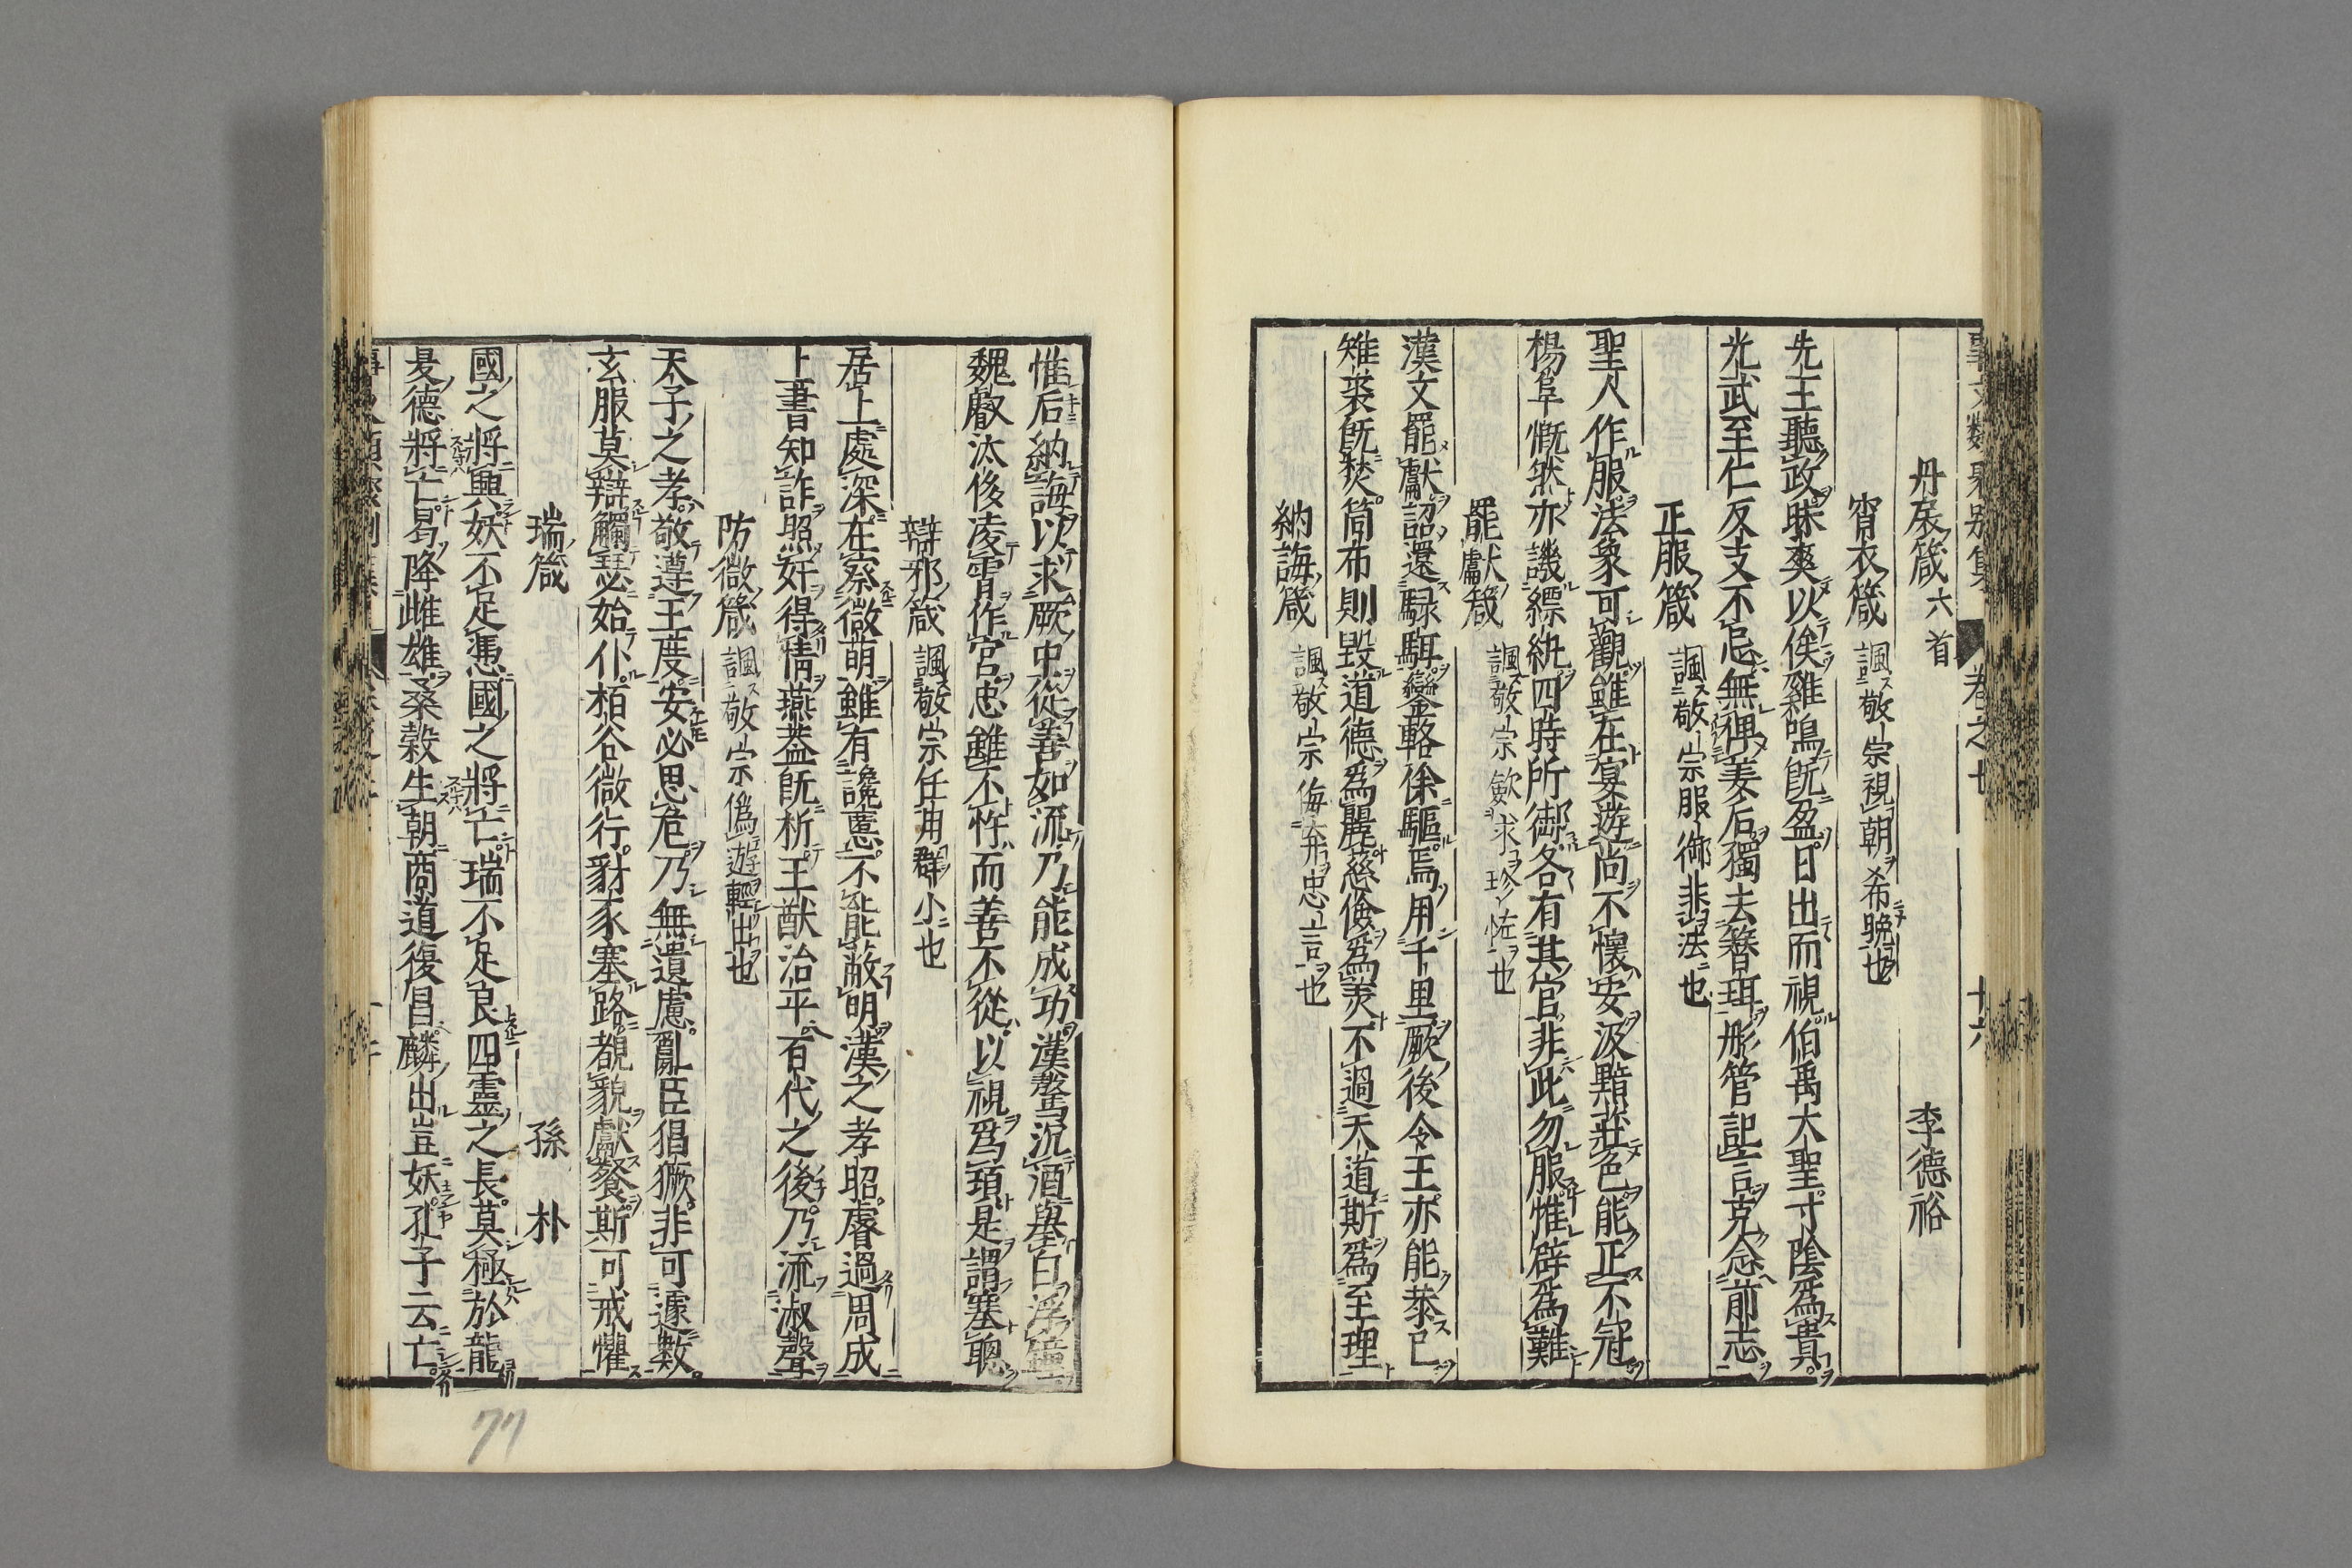 丹扆箴六首 李德裕
宵衣箴 諷敬宗視朝希晚也
先王聽政昧爽以俟雞鳴既盈日出而視伯禹大聖寸陰爲貴
光武至仁反支不忌無俾姜后獨去簪珥彤管記言克念前志
正服箴 諷敬宗服御非法也
聖人作服法象可觀雖在宴遊尚不懷安汲黯莊色能正不冠
楊阜慨然亦譏縹紈四時所御各有其官非此勿服惟辟爲難
罷獻箴 諷敬宗歛求珍怪也
漢文罷獻詔還騄駬鑾輅徐驅焉用千里厥後令王亦能恭己
雉裘既焚筒布則毀道德爲麗慈儉爲美不過天道斯爲至理
納誨箴 諷敬宗侮弃忠言也
惟后納誨以求厥中從善如流乃能成功漢驁沉酒舉白浮鐘
魏叡汰侈凌霄作宮忠雖不忤而善不從以視爲瑱是謂塞聰
辯邪箴 諷敬宗任用群小也
居上處深在察微萌雖有讒慝不能蔽明漢之孝昭睿過周成
上書知詐照奸得情燕蓋既析王猷治平百代之後乃流淑聲
防微箴 諷敬宗僞遊輕出也
天子之孝敬遵王度安必思危乃無遺慮亂臣猖獗非可遽數
玄服莫辯觸瑟始仆栢谷微行豺豕塞路覩貌獻餐斯可戒懼
瑞箴 孫朴
國之將興妖不足憑國之將亡瑞不足良四靈之長莫極於龍
夏德將亡曷降雌雄桑榖生朝商道復昌麟出豈妖孔子云亡
77